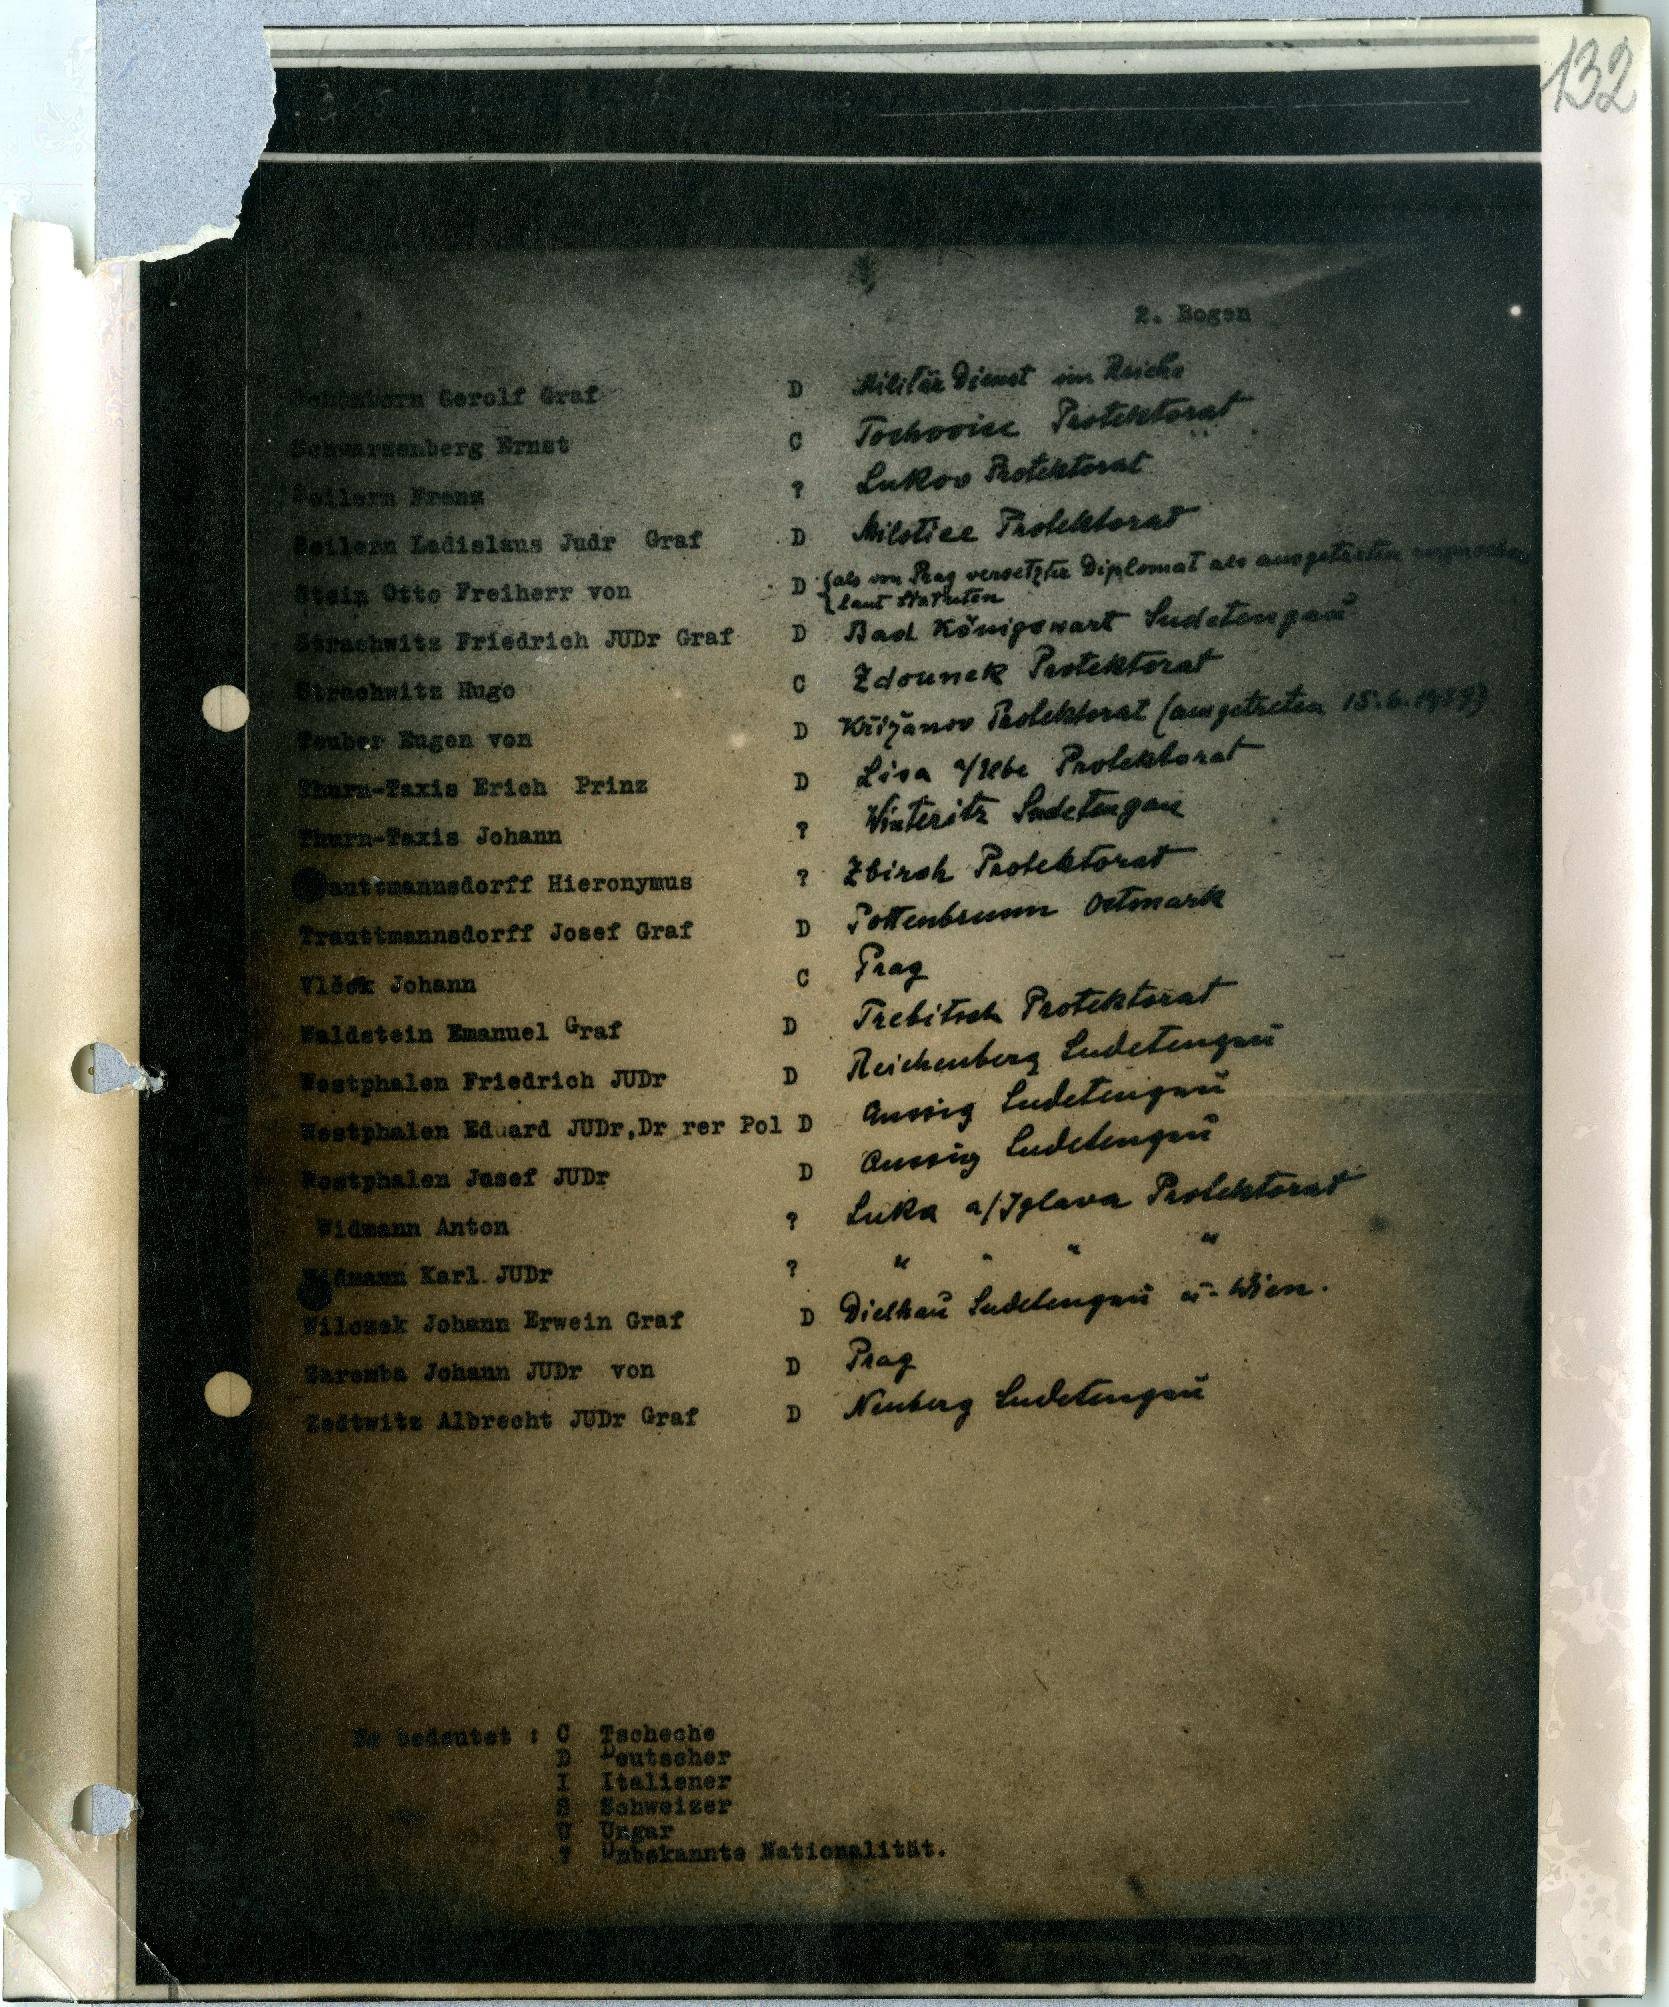 132
2. Bogen
Gerolf Graf D Militär Dienst im Reiche
Schwarzenberg Ernst C Tochovice Protektorat
Seilern Franz ? Lukov Protektorat
Seilern Ladislaus Judr Graf D Milotice Protektorat
Stein Otto Freiherr von D {als von Prag versetzter Diplomat als ausgetreten
laut Statuten
Strachwitz Friedrich JUDr Graf D Bad Königswart Sudetengau
Strachwitz Hugo C Zdounek Protektorat
Teuber Eugen von D Křižanov Protektorat (ausgetreten 15.6.1939)
Thurn-Taxis Erich Prinz D Lisa a/Elbe Protektorat
Thurn-Taxis Johann ? Winteritz Sudetengau
Trauttmannsdorff Hieronymus ? Zbiroh Protektorat
Trauttmannsdorff Josef Graf D Pottenbrunn Ostmark
Vlček Johann C Prag
Waldstein Emanuel Graf D Trebitsch Protektorat
Westphalen Friedrich JUDr D Reichenberg Sudetengau
Westphalen Eduard JUDr,Dr rer Pol D Aussig Sudetengau
Westphalen Josef JUDr D Aussig Sudetengau
Widmann Anton ? Luka a/Iglava Protektorat
Widmann Karl JUDr ? " " " "
Wilczek Johann Erwein Graf D Dielhau Sudetengau u. Wien.
Zaremba Johann JUDr von D Prag
Zedtwitz Albrecht JUDr Graf D Neuberg Sudetengau
Es bedeutet : C Tscheche
D Deutscher
I Italiener
S Schweizer
U Ungar
? Unbekannte Nationalität.